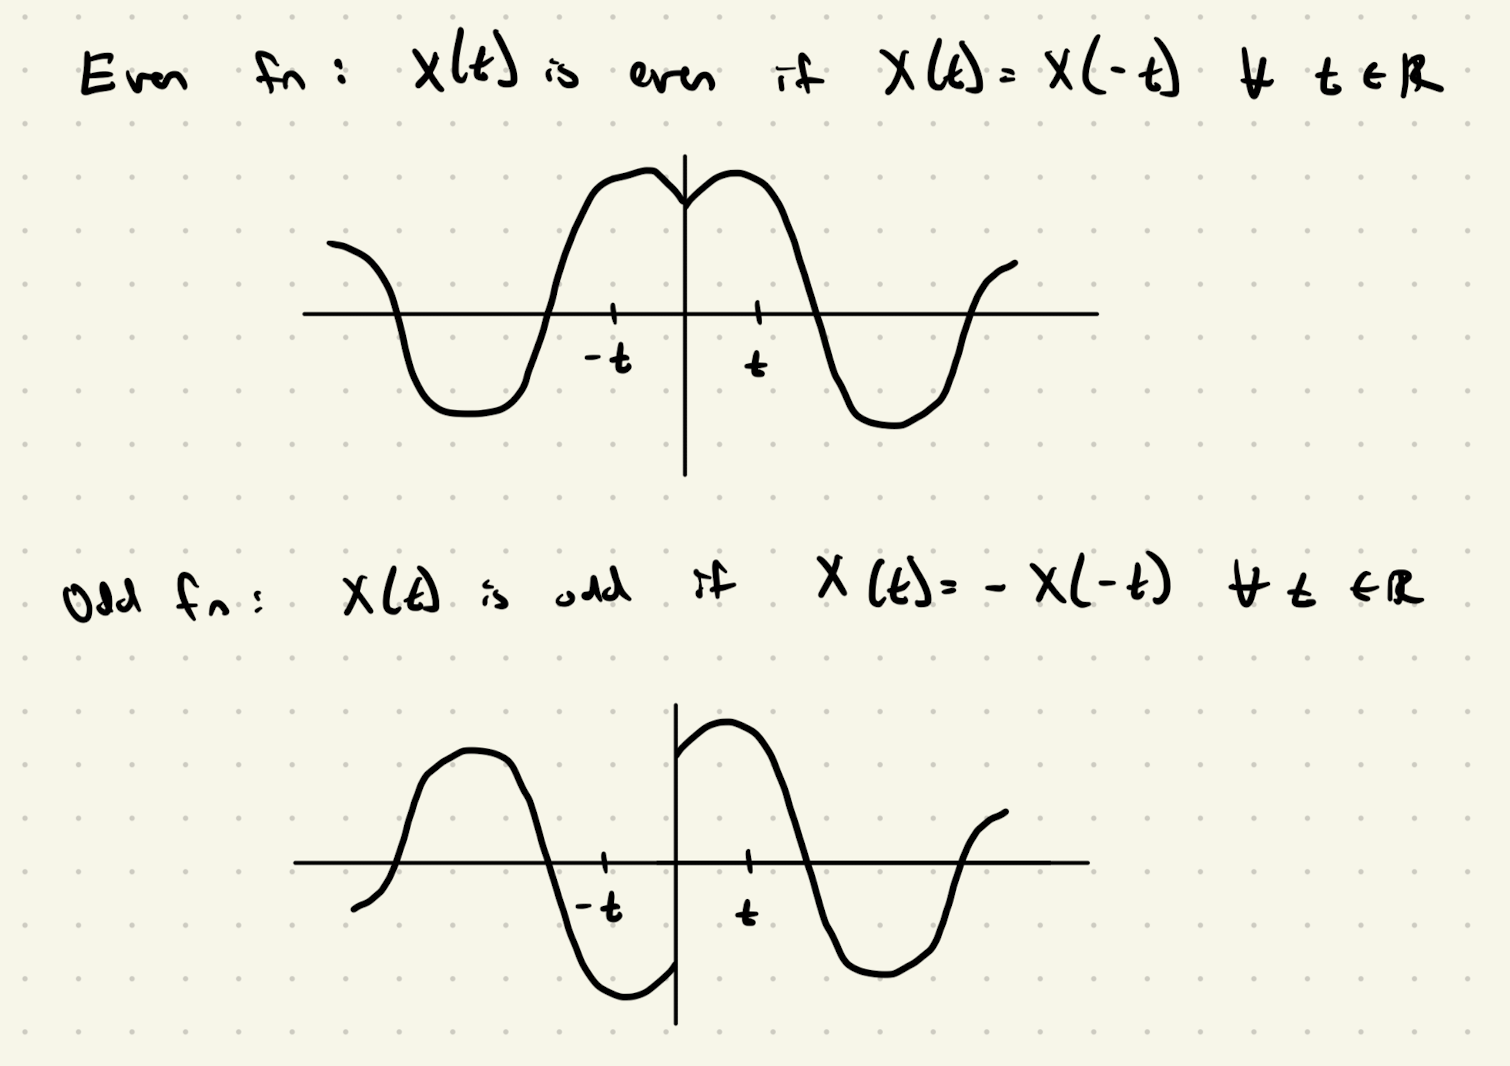 Even fn : X(t) is even if X(t) = X(-t) ∀ t ∈ ℝ
-t t
Odd fn : X(t) is odd if X(t) = - X(-t) ∀ t ∈ ℝ
-t t